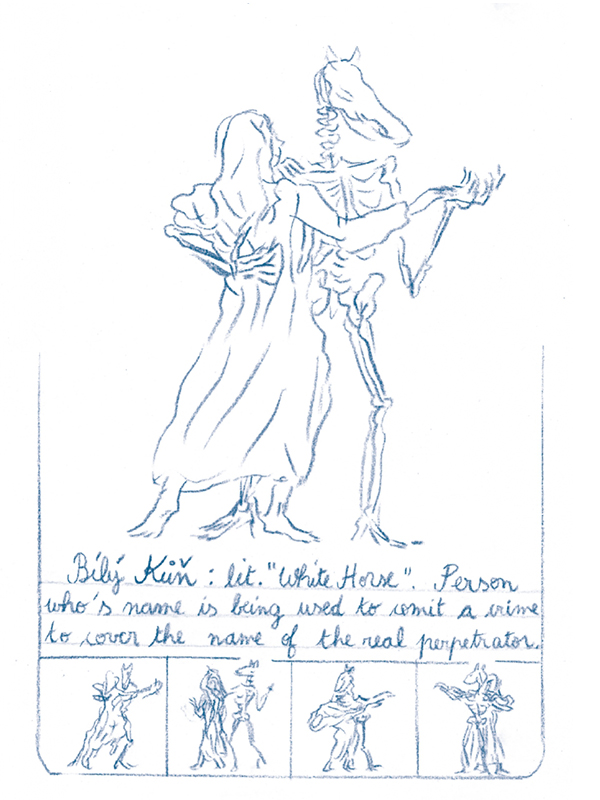 Bílý Kůň : lit. "White Horse". Person
who's name is being used to comit a crime
to cover the name of the real perpetrator.